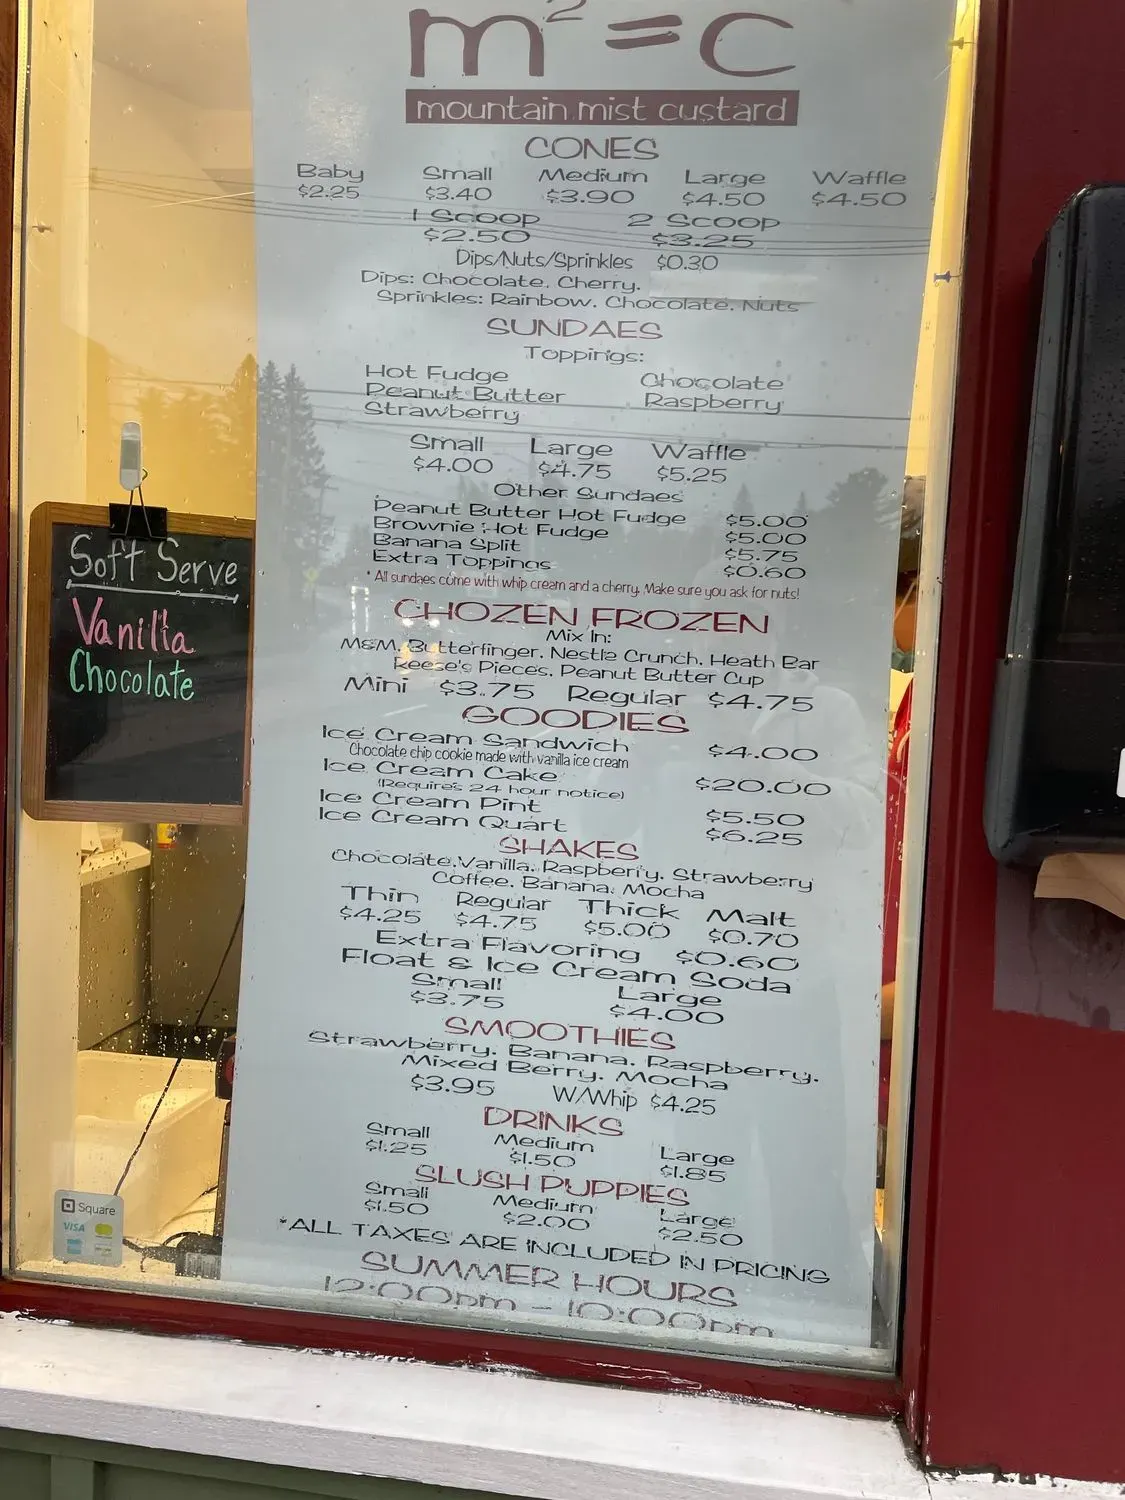 m²=c
mountain mist custard
CONES
Baby Small Medium Large Waffle
$2.25 $3.40 $3.90 $4.50 $4.50
1 Scoop 2 Scoop
$2.50 $3.25
Dips/Nuts/Sprinkles $0.30
Dips: Chocolate, Cherry,
Sprinkles: Rainbow, Chocolate, Nuts
SUNDAES
Toppings:
Hot Fudge Chocolate
Peanut Butter Raspberry
Strawberry
Small Large Waffle
$4.00 $4.75 $5.25
Other Sundaes
Peanut Butter Hot Fudge $5.00
Brownie Hot Fudge $5.00
Banana Split $5.75
Extra Toppings $0.60
* All sundaes come with whip cream and a cherry. Make sure you ask for nuts!
CHOZEN FROZEN
Mix In:
M&M, Butterfinger, Nestle Crunch, Heath Bar
Reese's Pieces, Peanut Butter Cup
Mini $3.75 Regular $4.75
GOODIES
Ice Cream Sandwich $4.00
Chocolate chip cookie made with vanilla ice cream
Ice Cream Cake $20.00
(Requires 24 hour notice)
Ice Cream Pint $5.50
Ice Cream Quart $6.25
SHAKES
Chocolate, Vanilla, Raspberry, Strawberry
Coffee, Banana, Mocha
Thin Regular Thick Malt
$4.25 $4.75 $5.00 $0.70
Extra Flavoring $0.60
Float & Ice Cream Soda
Small Large
$3.75 $4.00
SMOOTHIES
Strawberry, Banana, Raspberry,
Mixed Berry, Mocha
$3.95 W/Whip $4.25
DRINKS
Small Medium Large
$1.25 $1.50 $1.85
SLUSH PUPPIES
Small Medium Large
$1.50 $2.00 $2.50
*ALL TAXES ARE INCLUDED IN PRICING
SUMMER HOURS
12:00pm - 10:00pm
Soft Serve
Vanilla
Chocolate
Square
VISA